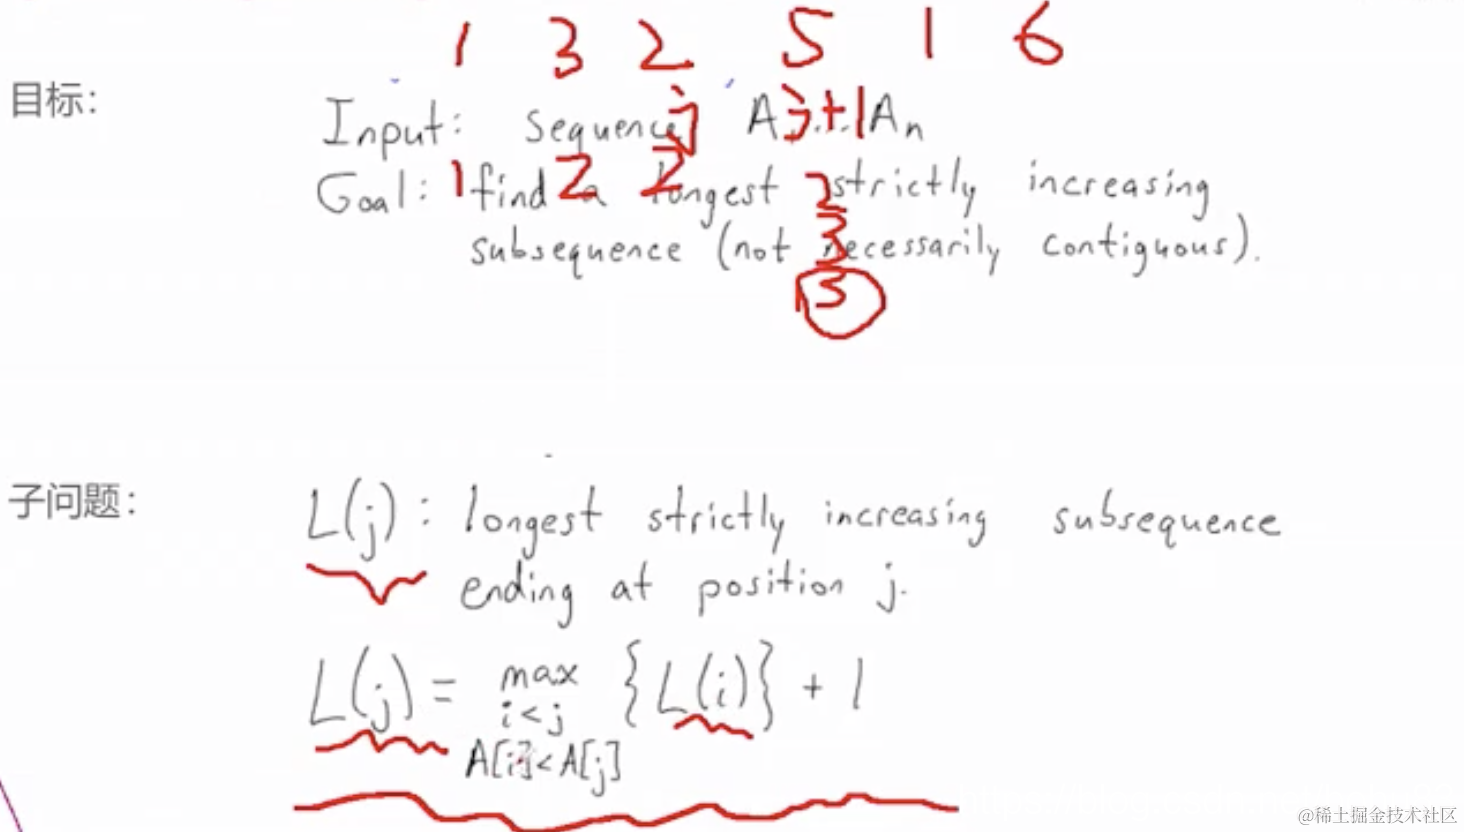 1 3 2 5 1 6
目标:
Input: sequence A...An
j j+1
Goal: find a longest strictly increasing
1 2 2 2
subsequence (not necessarily contiguous).
3
3
子问题:
L(j): longest strictly increasing subsequence
ending at position j.
L(j) = max {L(i)} + 1
i<j
A[i]<A[j]
@稀土掘金技术社区